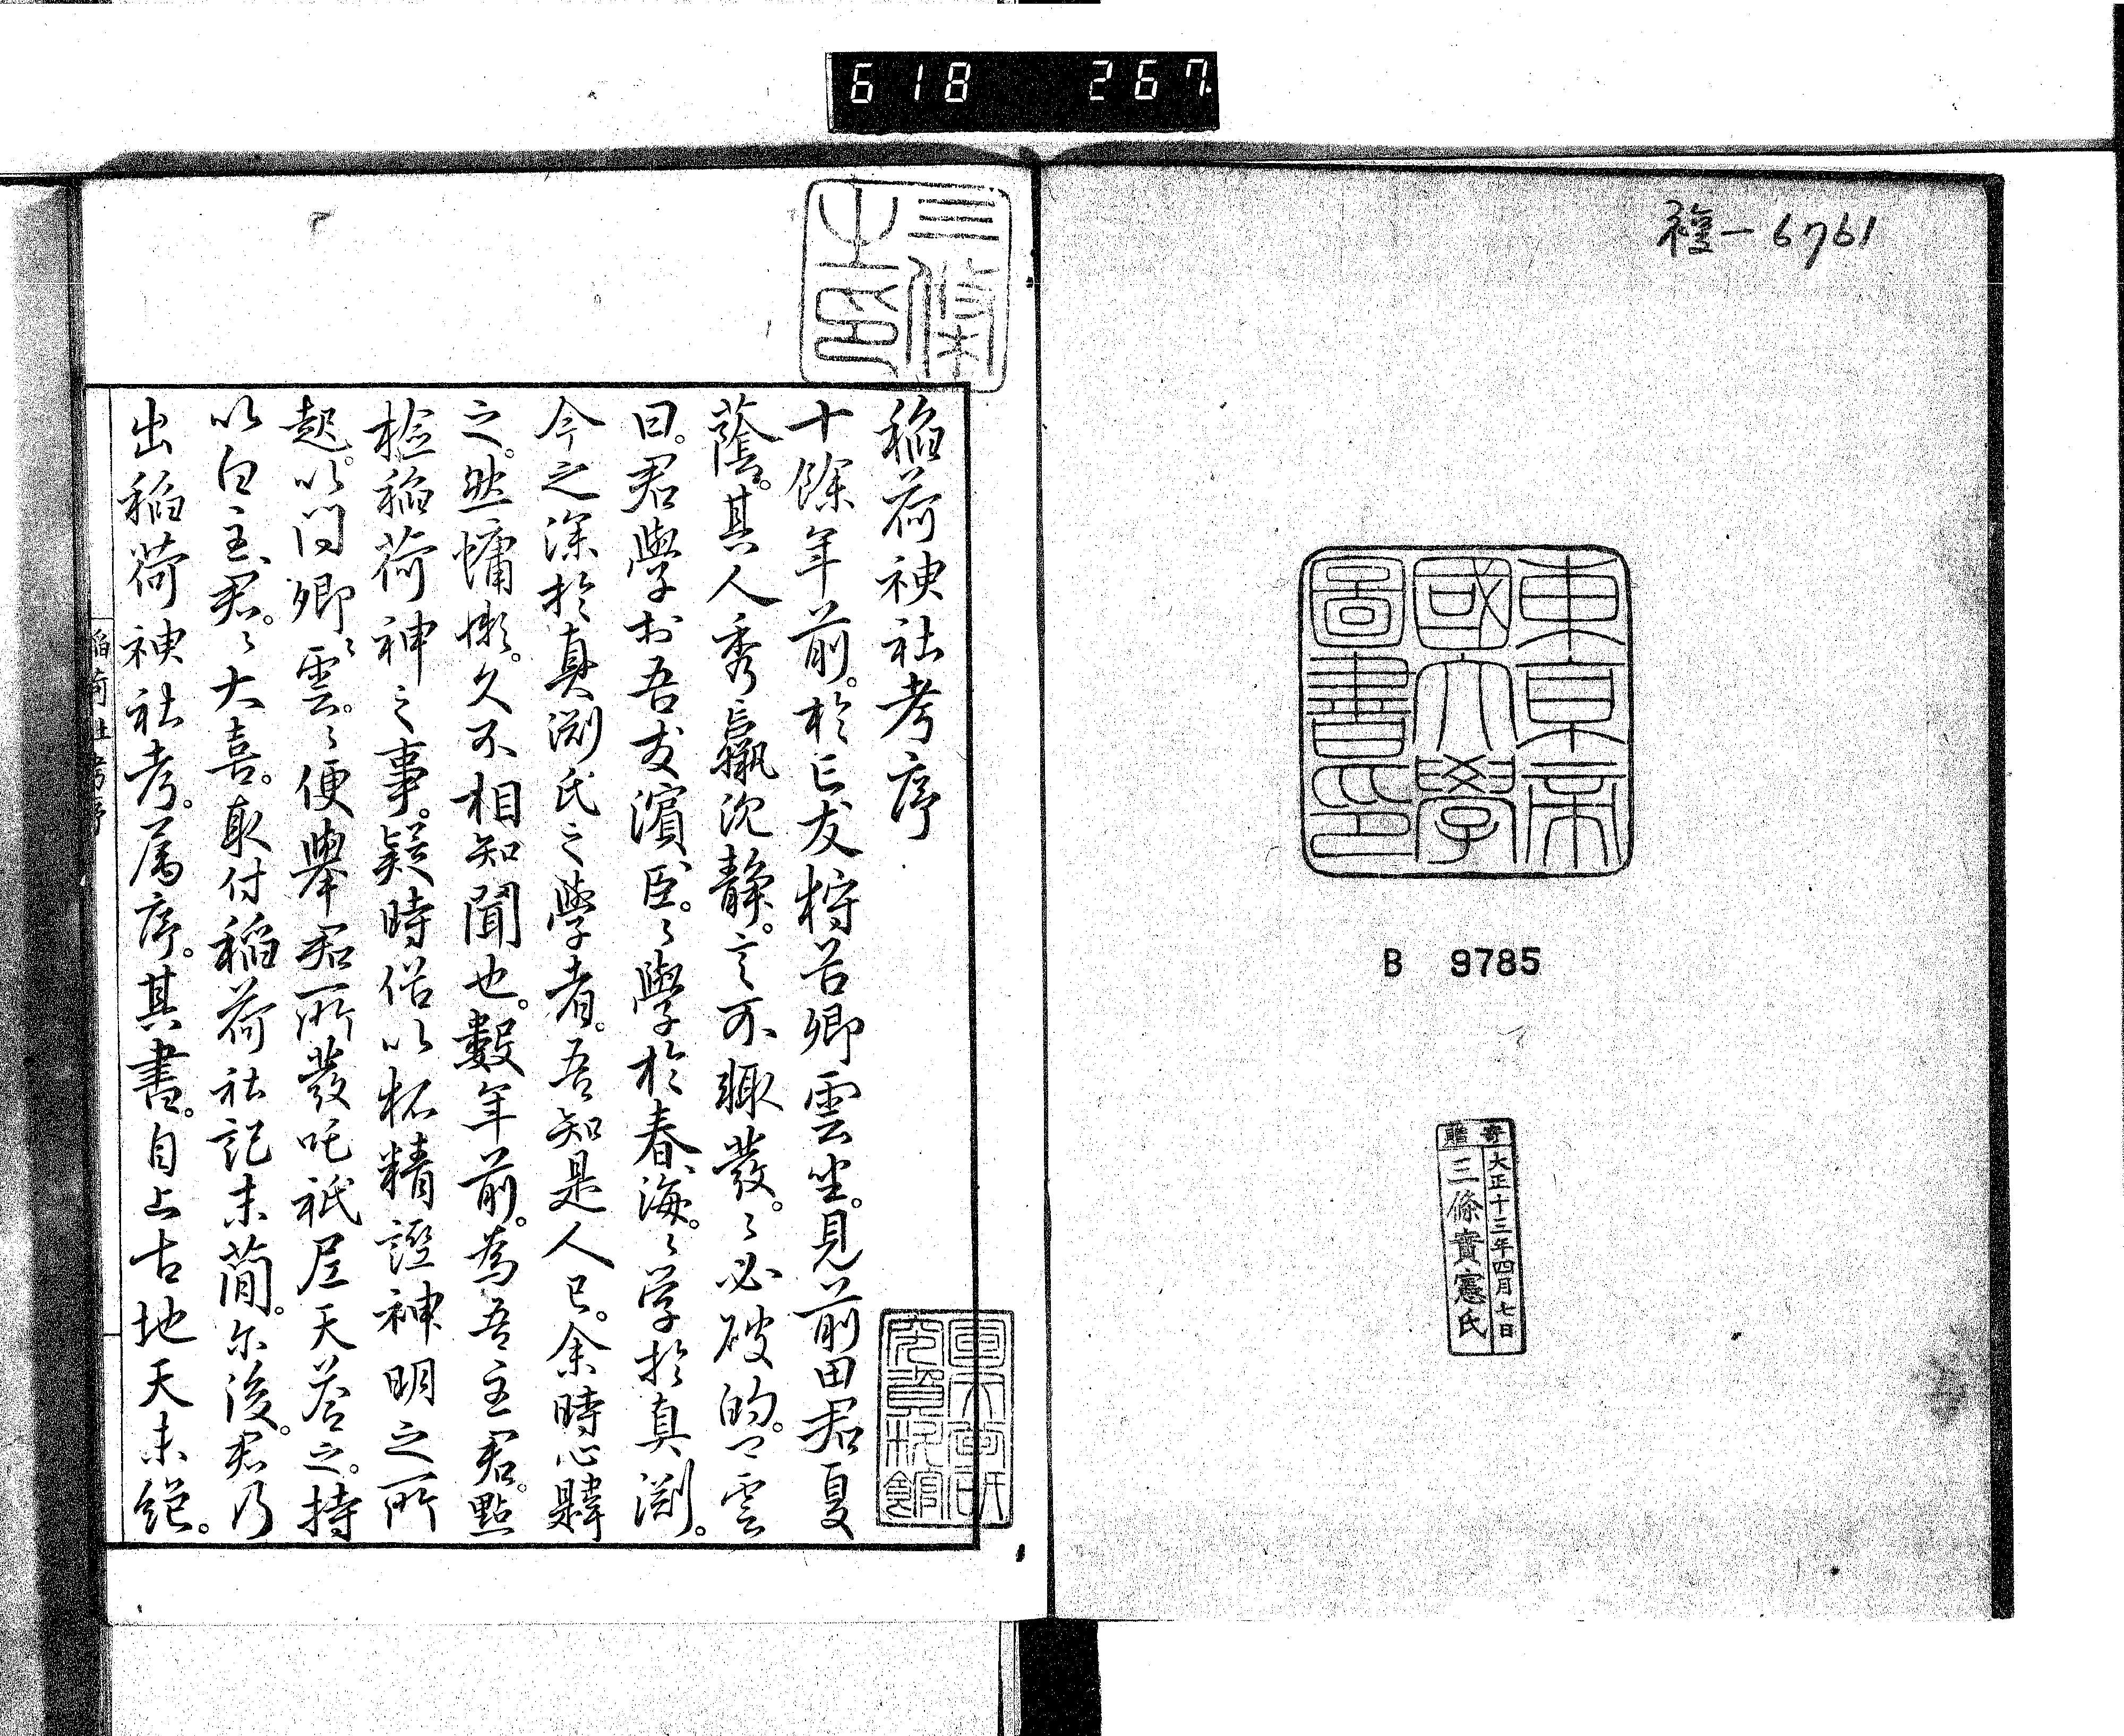 618 267
複-6761
東京帝
國大學
圖書印
B 9785
寄贈
大正十三年四月七日
三條實憲氏
三條
之印
稲荷神社考序
十餘年前。於亡友椁谷卿雲坐。見前田君夏
蔭。其人秀羸沈静。言不輙發。〻必破的。卿雲
曰。君學於吾友濱臣。〻學於春海。〻学於真渕。
今之深於真渕氏之學者。吾知是人已。余時心韙
之。然慵懶。久不相知聞也。數年前。為吾主君。點
檢稲荷神之事。疑時俗以柘精證神明之所
起。以问卿〻雲〻。便舉君所發吒祇尼天答之。持
以白主君。〻大喜。取付稲荷社記末簡。尓後。君乃
出稲荷神社考。属序。其書。自上古地天未絶。
稲荷社考序